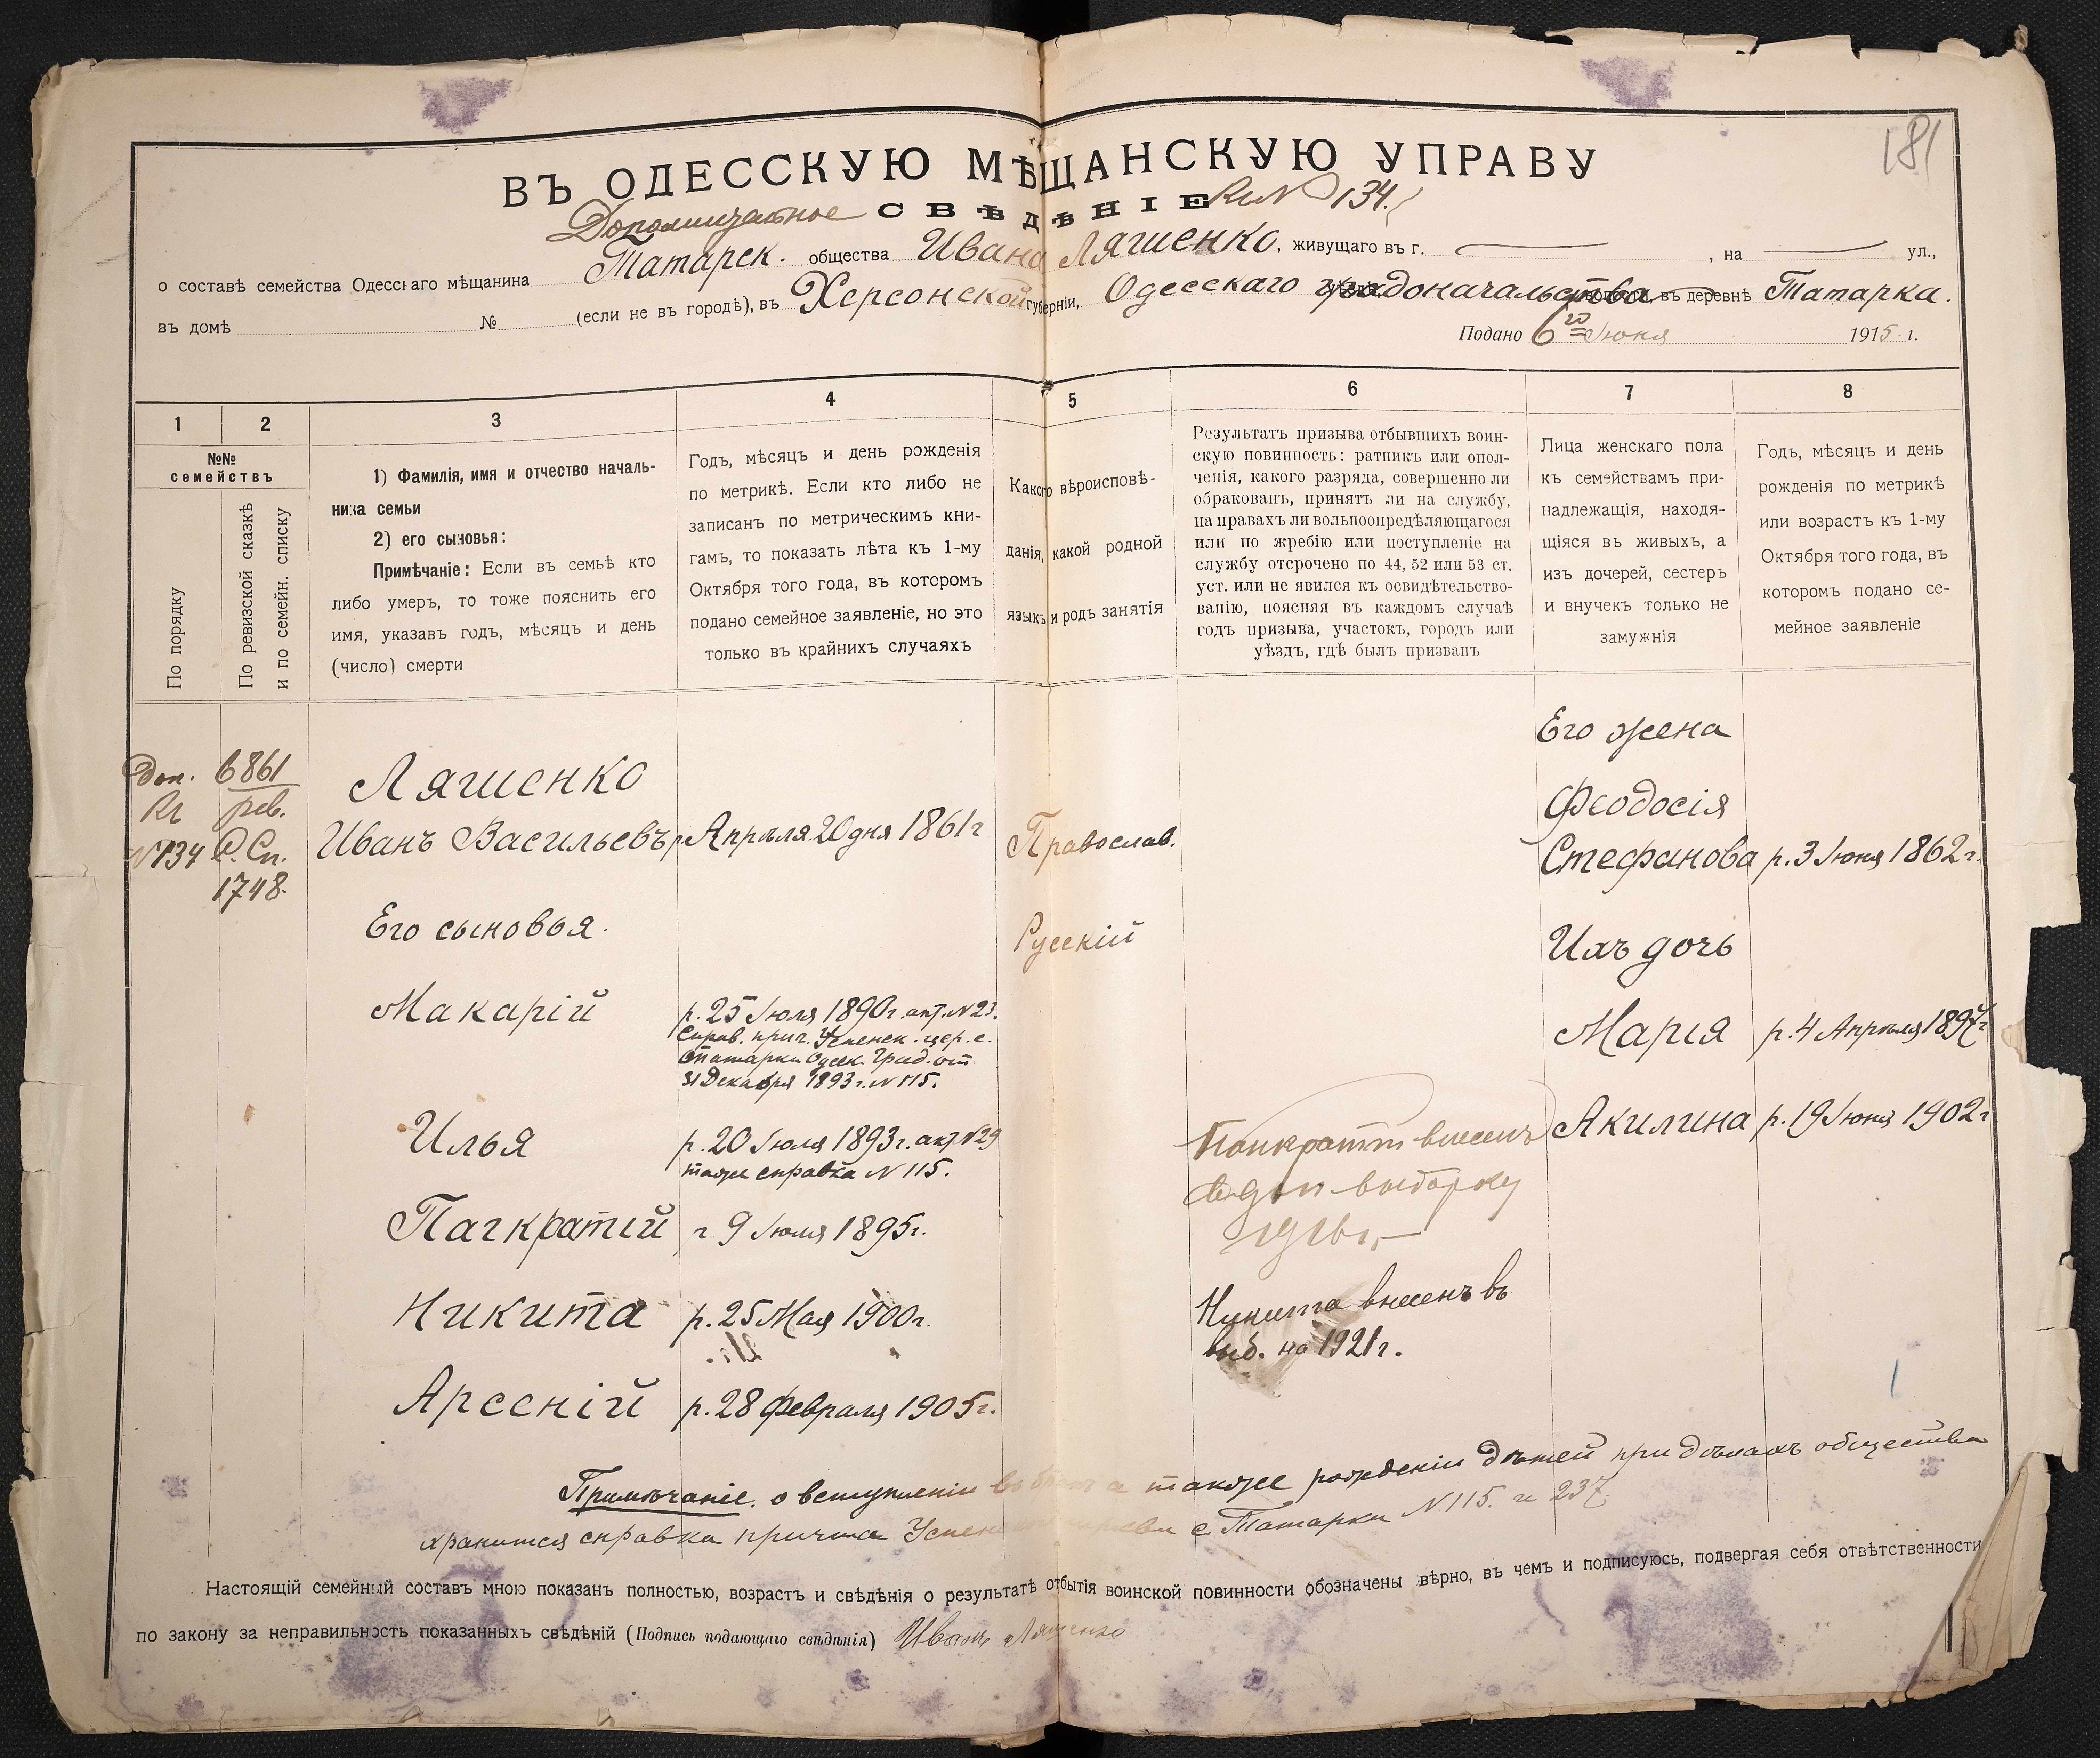 181
ВЪ ОДЕССКУЮ МѢЩАНСКУЮ УПРАВУ
Дополнительное СВѢДѢНІЕ Кг N 134.
о составѣ семейства Одесскаго мѣщанина Татарск. общества Ивана Ляшенко, живущаго въ г. , на ул.,
въ домѣ № (если не въ городѣ), въ Херсонской губерніи, Одесскаго градоначальства въ деревнѣ Татарка.
Подано 6го Іюня 1915 г.
1 2 3 4 5 6 7 8
№№ семействъ
По порядку
По ревизской сказкѣ
и по семейн. списку
1) Фамилія, имя и отчество началь-
ника семьи
2) его сыновья:
Примѣчаніе: Если въ семьѣ кто
либо умеръ, то тоже пояснить его
имя, указавъ годъ, мѣсяцъ и день
(число) смерти
Годъ, мѣсяцъ и день рожденія
по метрикѣ. Если кто либо не
записанъ по метрическимъ кни-
гамъ, то показать лѣта къ 1-му
Октября того года, въ которомъ
подано семейное заявленіе, но это
только въ крайнихъ случаяхъ
Какого вѣроисповѣ-
данія, какой родной
языкъ и родъ занятія
Результатъ призыва отбывшихъ воин-
скую повинность: ратникъ или опол-
ченія, какого разряда, совершенно ли
обракованъ, принятъ ли на службу,
на правахъ ли вольноопредѣляющагося
или по жребію или поступленіе на
службу отсрочено по 44, 52 или 53 ст.
уст. или не явился къ освидѣтельство-
ванію, поясняя въ каждомъ случаѣ
годъ призыва, участокъ, городъ или
уѣздъ, гдѣ былъ призванъ
Лица женскаго пола
къ семействамъ при-
надлежащія, находя-
щіяся въ живыхъ, а
изъ дочерей, сестеръ
и внучекъ только не
замужнія
Годъ, мѣсяцъ и день
рожденія по метрикѣ
или возрастъ къ 1-му
Октября того года, въ
которомъ подано се-
мейное заявленіе
Доп. 6861
Кг рев.
N 134 С. Сп.
1748.
Ляшенко
Иванъ Васильевъ р. Апрѣля 20 дня 1861 г Православ.
Его сыновья. Русскій
Макарій р. 25 Іюля 1890 г. акт. N 23.
Справ. прич. Успенск. цер. с.
Татарки Одесск. Град. от
31 Декабря 1893 г. N 115.
Илья р. 20 Іюля 1893 г. акт N 29
таже справка N 115.
Пагкратій г 9 Іюля 1895 г.
Никита р. 25 Мая 1900 г.
Арсеній р. 28 Февраля 1905 г.
Панкратій внесенъ
в доп выборку
Никита внесенъ въ
выб. на 1921 г.
Его жена
Феодосія
Стефанова р. 3 Іюня 1862 г.
Ихъ дочь
Марія р. 4 Апрѣля 1897 г
Акилина р. 19 Іюня 1902 г
Примѣчаніе. о вступленіи въ бракъ а также рожденіи дѣтей при дѣлахъ общества
хранится справка причта Успенской церкви с. Татарки N 115. и 237.
Настоящій семейный составъ мною показанъ полностью, возрастъ и свѣдѣнія о результатѣ отбытія воинской повинности обозначены вѣрно, въ чемъ и подписуюсь, подвергая себя отвѣтственности
по закону за неправильность показанныхъ свѣдѣній (Подпись подающаго свѣдѣнія) Иванъ Ляшенко